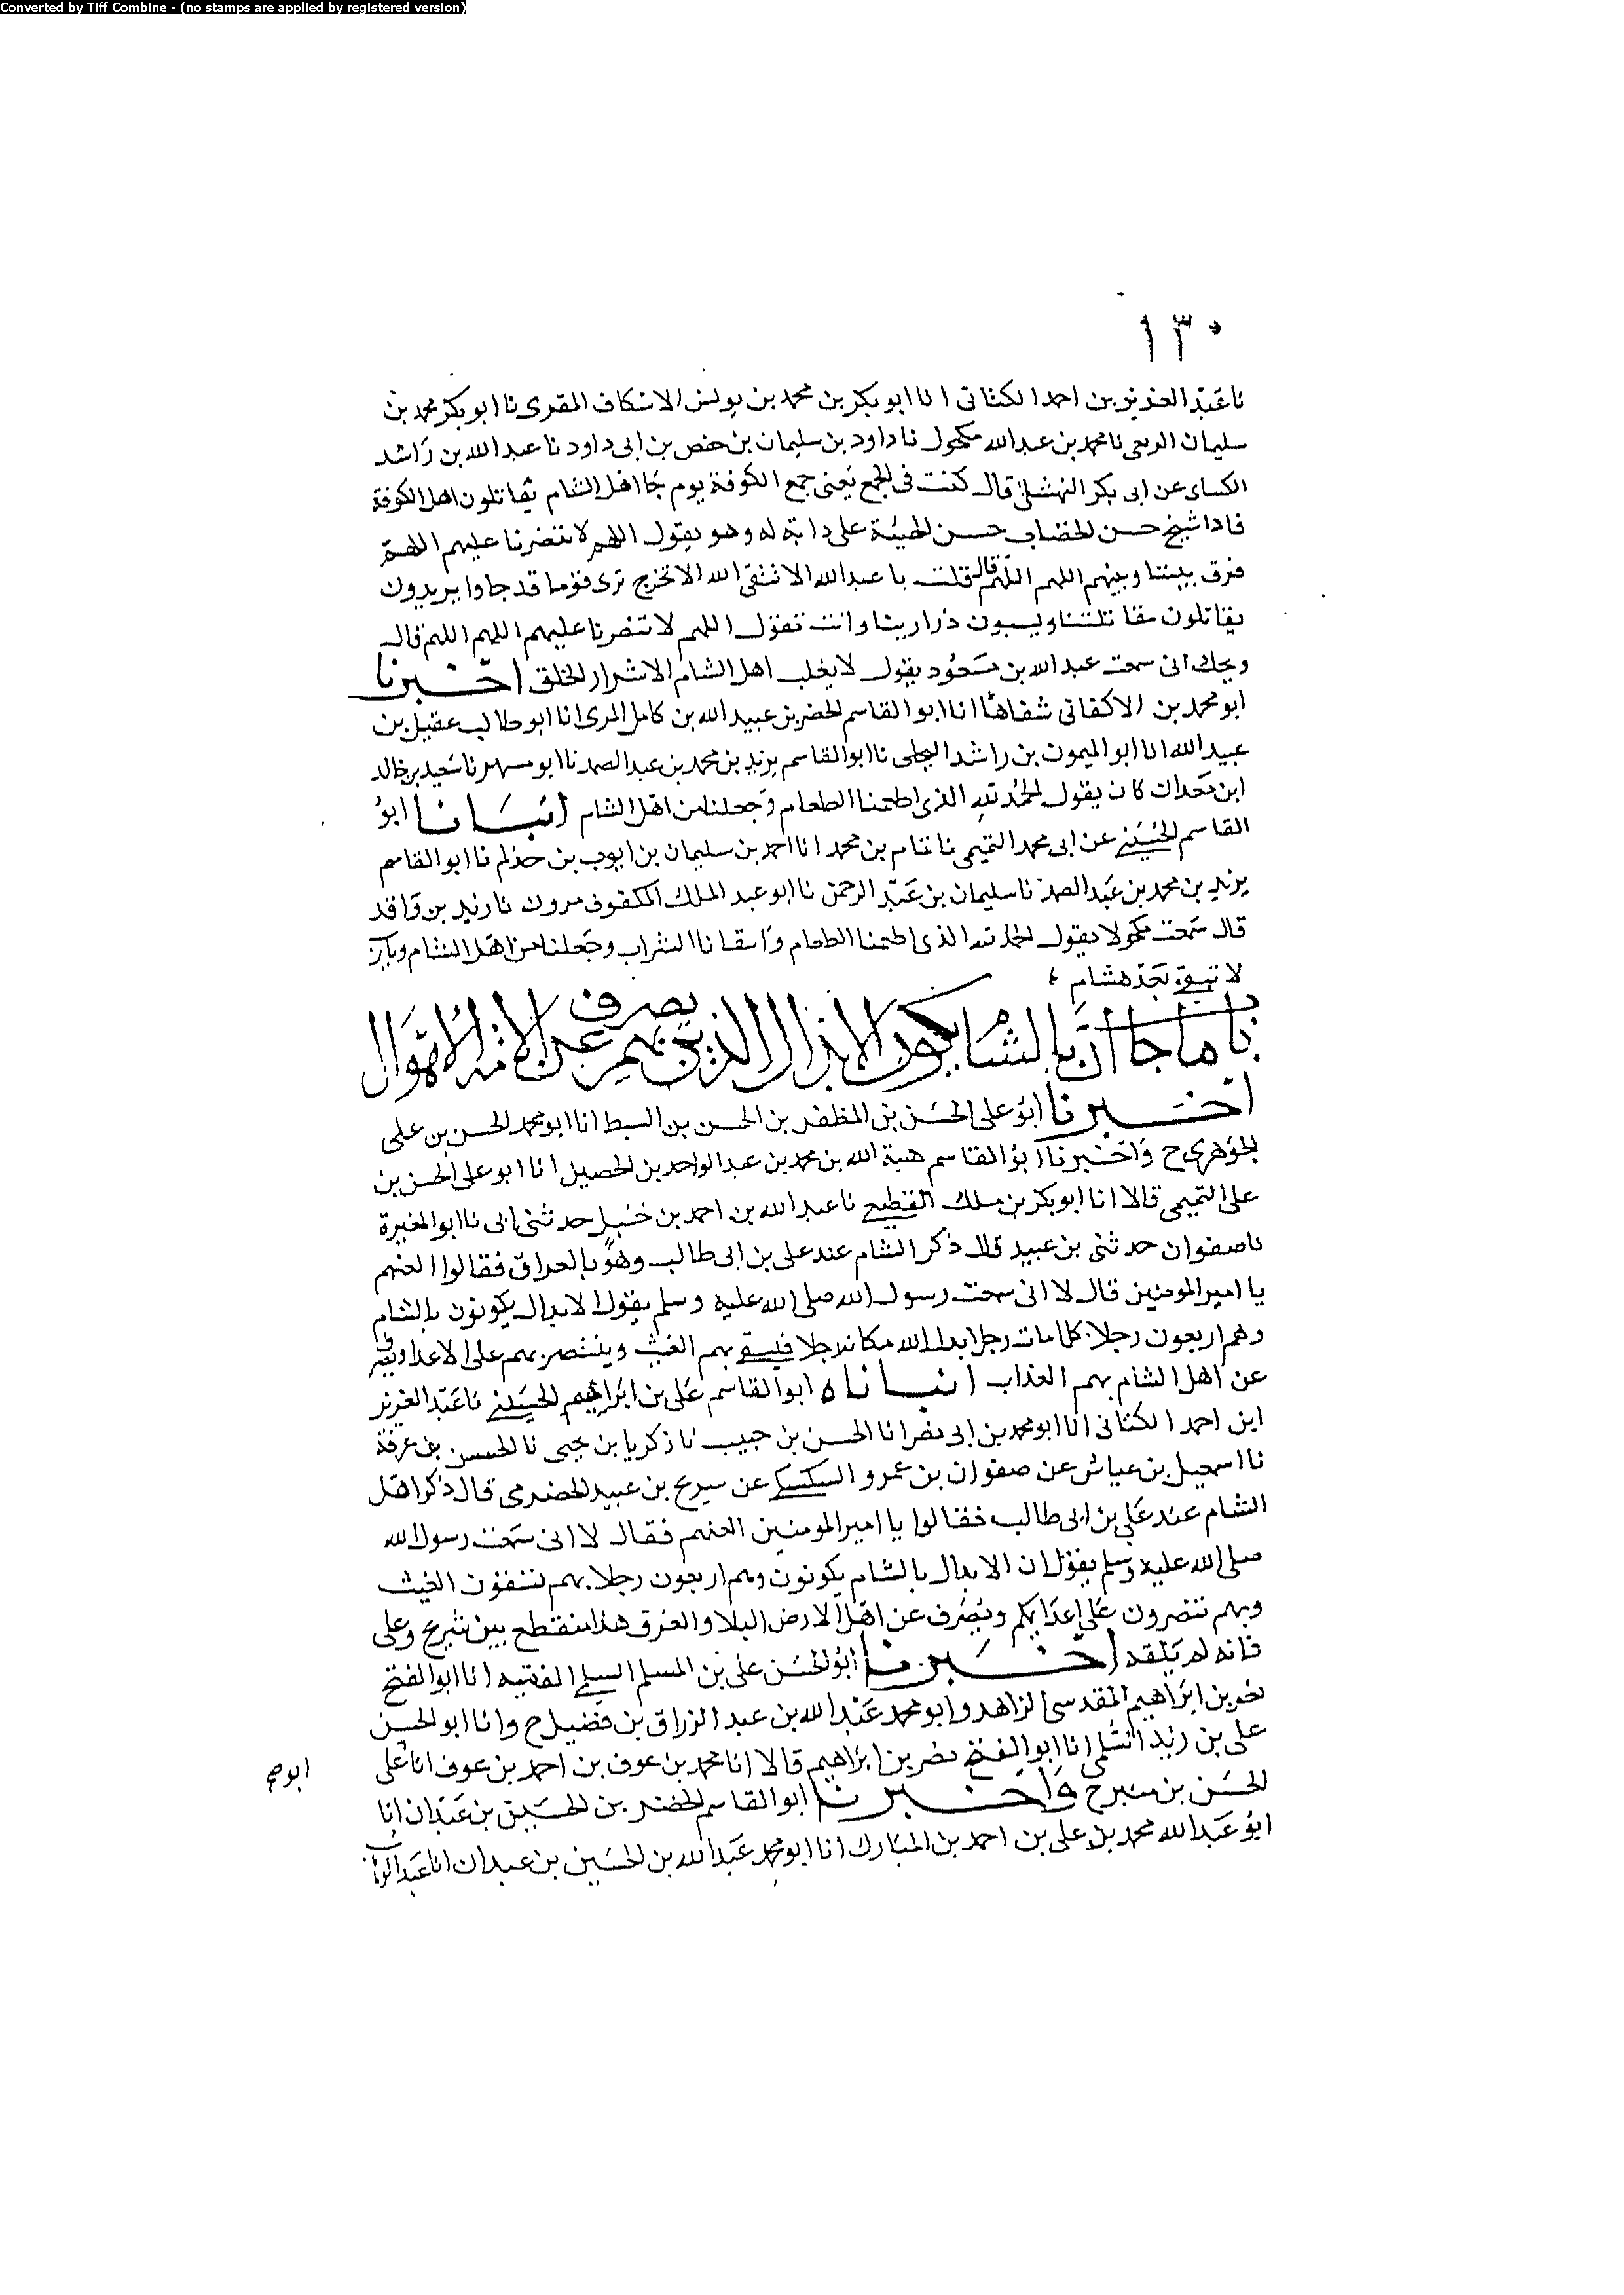 Converted by Tiff Combine - (no stamps are applied by registered version)
١٣٠
نا عبد العزيز بن احمد الكتانى انا ابو بكر بن محمد بن يونس الاسكاف المقرى نا ابو بكر محمد بن
سليمان الربعى نا محمد بن عبد الله مكحول نا داود بن سليمان بن حفص بن ابى داود نا عبد الله بن راشد
الكساى عن ابى بكر النهشلى قال كنت فى الجمع يعنى جمع الكوفة يوم جا اهل الشام يقاتلون اهل الكوفة
فاذا شيخ حسن الخضاب حسن الهيئة على دابة له وهو يقول اللهم لا تنصرنا عليهم اللهم
فرق بيننا وبينهم اللهم اللهم قال قلت يا عبد الله الا تتقى الله الا تخرج ترى قوما قد جاوا يريدون
يقاتلون مقاتلتنا ويسبون ذرارينا وانت تقول اللهم لا تنصرنا عليهم اللهم اللهم قال
ويحك انى سمعت عبد الله بن مسعود يقول لا يغلب اهل الشام الا شرار الخلق اخبرنا
ابو محمد بن الاكفانى شفاها انا ابو القاسم الخضر بن عبيد الله بن كامل المرى انا ابو طالب عقيل بن
عبيد الله انا ابو الميمون بن راشد البجلى نا ابو القاسم يزيد بن محمد بن عبد الصمد نا ابو مسهر نا سعيد بن خالد
ابن معدان كان يقول الحمد لله الذى اطعمنا الطعام وجعلنا من اهل الشام انبانا ابو
القاسم الحسينى عن ابى محمد التميمى نا تمام بن محمد انا احمد بن سليمان بن ايوب بن حذلم نا ابو القاسم
يزيد بن محمد بن عبد الصمد نا سليمان بن عبد الرحمن نا ابو عبد الملك المكفوف مروان نا زيد بن واقد
قال سمعت مكحولا يقول الحمد لله الذى اطعمنا الطعام واسقانا الشراب وجعلنا من اهل الشام
لا تبقى بعد هشام
باب ما جا ان بالشام يكون الابدال الذين يصرف بهم عن الامة الاهوال
اخبرنا ابو على الحسن بن المظفر بن الحسن بن السبط انا ابو محمد الحسن بن على
الجوهرى ح واخبرنا ابو القاسم هبة الله بن محمد بن عبد الواحد بن الحصين انا ابو على الحسن بن
على التميمى قالا انا ابو بكر بن ملك القطيعى نا عبد الله بن احمد بن حنبل حدثنى ابى نا ابو المغيرة
نا صفوان حدثنى بن عبيد قال ذكر الشام عند على بن ابى طالب وهو بالعراق فقالوا العنهم
يا امير المومنين قال لا انى سمعت رسول الله صلى الله عليه وسلم يقول الابدال يكونون بالشام
وهم اربعون رجلا كلما مات رجل ابدل الله مكانه رجلا فيسقى بهم الغيث وينتصر بهم على الاعدا ويصرف
عن اهل الشام بهم العذاب انباناه ابو القاسم على بن ابراهيم الحسينى نا عبد العزيز
ابن احمد الكتانى انا ابو محمد بن ابى نصر انا الحسن بن حبيب نا زكريا بن يحيى نا الحسن بن عرفة
نا اسمعيل بن عياش عن صفوان بن عمرو السكسكى عن شريح بن عبيد الحضرمى قال ذكر اهل
الشام عند على بن ابى طالب فقالوا يا امير المومنين العنهم فقال لا انى سمعت رسول الله
صلى الله عليه وسلم يقول ان الابدال بالشام يكونون وهم اربعون رجلا بهم تسقون الغيث
وبهم تنصرون على اعدايكم ويصرف عن اهل الارض البلا والغرق هذا منقطع بين شريح وعلى
فانه لم يلقه اخبرنا ابو الحسن على بن المسلم السلمى الفقيه انا ابو الفتح
نصر بن ابراهيم المقدسى الزاهد وابو محمد عبد الله بن عبد الرزاق بن فضيل ح وانا ابو الحسن
على بن زيد السلمى انا ابو الفتح نصر بن ابراهيم قالا انا محمد بن عوف بن احمد بن عوف انا على
ابو صح
الحسن بن منير ح واخبرنا ابو القاسم الخضر بن الحسين بن عبدان انا
ابو عبد الله محمد بن على بن احمد بن المبارك انا ابو محمد عبد الله بن الحسين بن عبدان انا عبد الوهاب